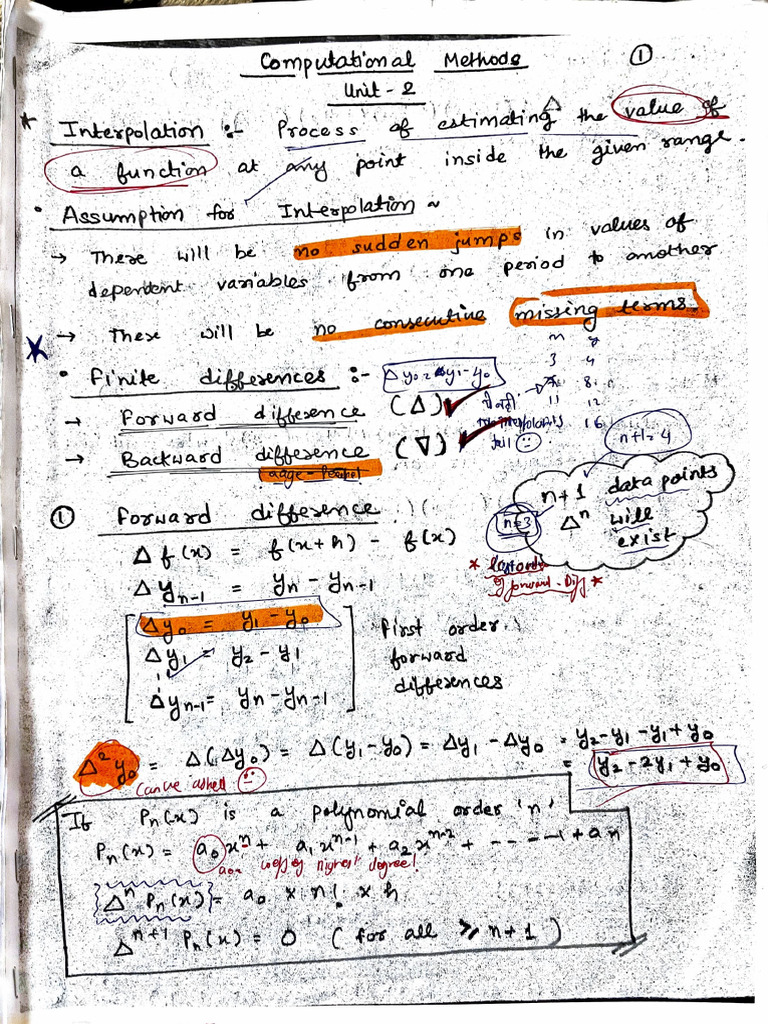 Computational Methods
①
Unit - 2
* Interpolation :- Process of estimating the value of
a function at any point inside the given range.
• Assumption for Interpolation ~
→ There will be no sudden jumps in values of
dependent variables from one period to another
→ There will be no consecutive missing terms.
• Finite differences :- Δy₀ = y₁ - y₀
3 4
8
11 12
16
→ Forward difference (Δ)
→ Backward difference (∇)
n+1 = 4
n+1 data points
n=3
Δⁿ will
exist
* of forward - Diff *
① Forward difference
Δ f(x) = f(x+h) - f(x)
Δyₙ₋₁ = yₙ - yₙ₋₁
Δy₀ = y₁ - y₀
Δy₁ = y₂ - y₁
Δyₙ₋₁ = yₙ - yₙ₋₁
First order
forward
differences
Δ²y₀ = Δ(Δy₀) = Δ(y₁-y₀) = Δy₁ - Δy₀ = y₂-y₁-y₁+y₀
= y₂-2y₁+y₀
can be asked
If Pₙ(x) is a polynomial order 'n'
Pₙ(x) = a₀xⁿ + a₁xⁿ⁻¹ + a₂xⁿ⁻² + ----+aₙ
a₀ = coeff of highest degree!
Δⁿ Pₙ(x) = a₀ x n! x h
Δⁿ⁺¹ Pₙ(x) = 0 (for all ≥ n+1)